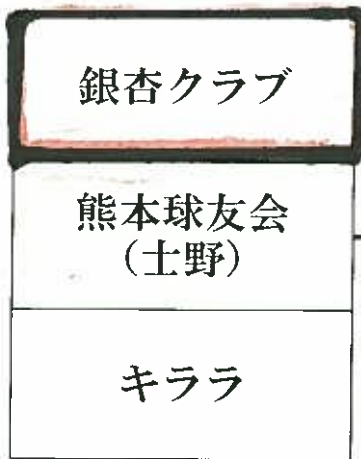 銀杏クラブ
熊本球友会
（士野）
キララ